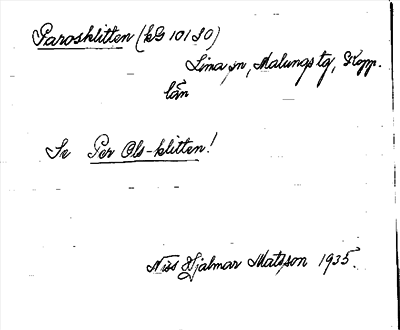 Parosklitten (kB 10130)
Lima sn, Malungs tg, Kopp.
län
Se Per Ols-klitten!
Niss Hjalmar Matsson 1935.